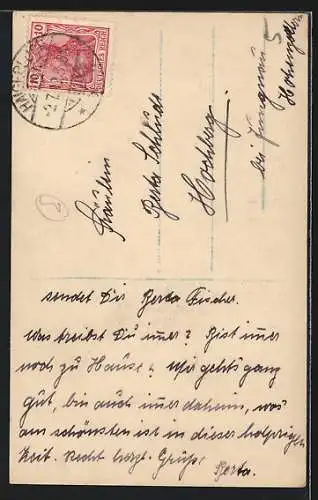 HAIGERLOCH
2.7.
10 10
Fräulein
Berta Schlude
Hochberg
bei Jungnau
Hohenzollern
5
sendet Dir Berta Fischer.
Was treibst Du imer? Bist imer
noch zu Hause? Mir gehts ganz
gut, bin auch imer daheim, was
am schönsten ist in dieser holprigen
Zeit. Recht herzl. Grüße
Berta.